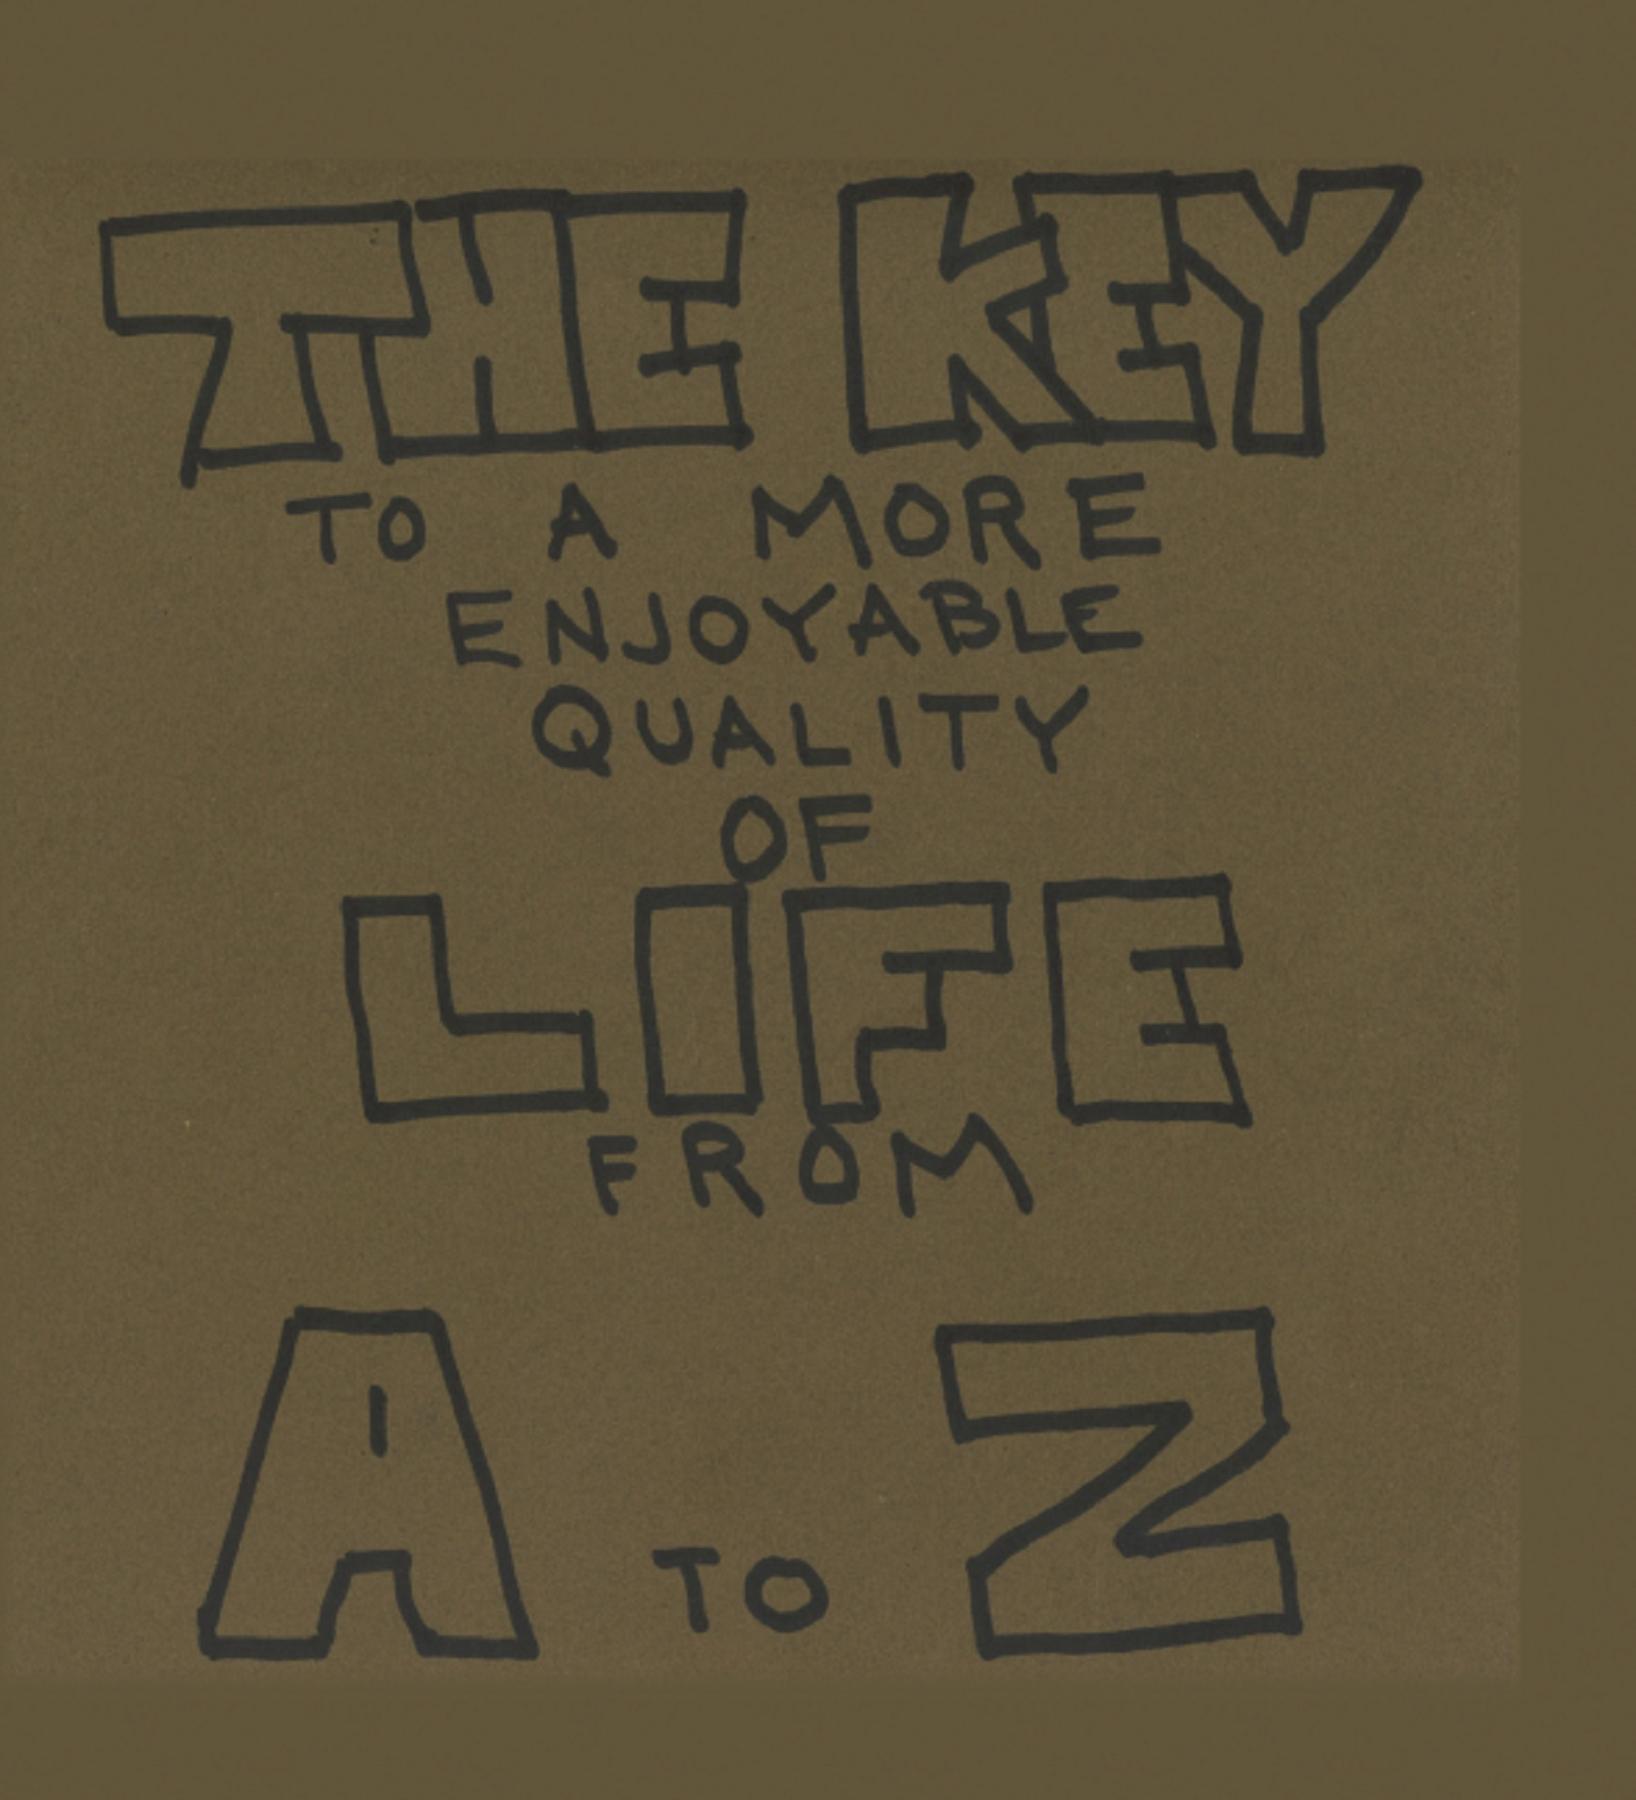 THE KEY
TO A MORE
ENJOYABLE
QUALITY
OF
LIFE
FROM
A TO Z